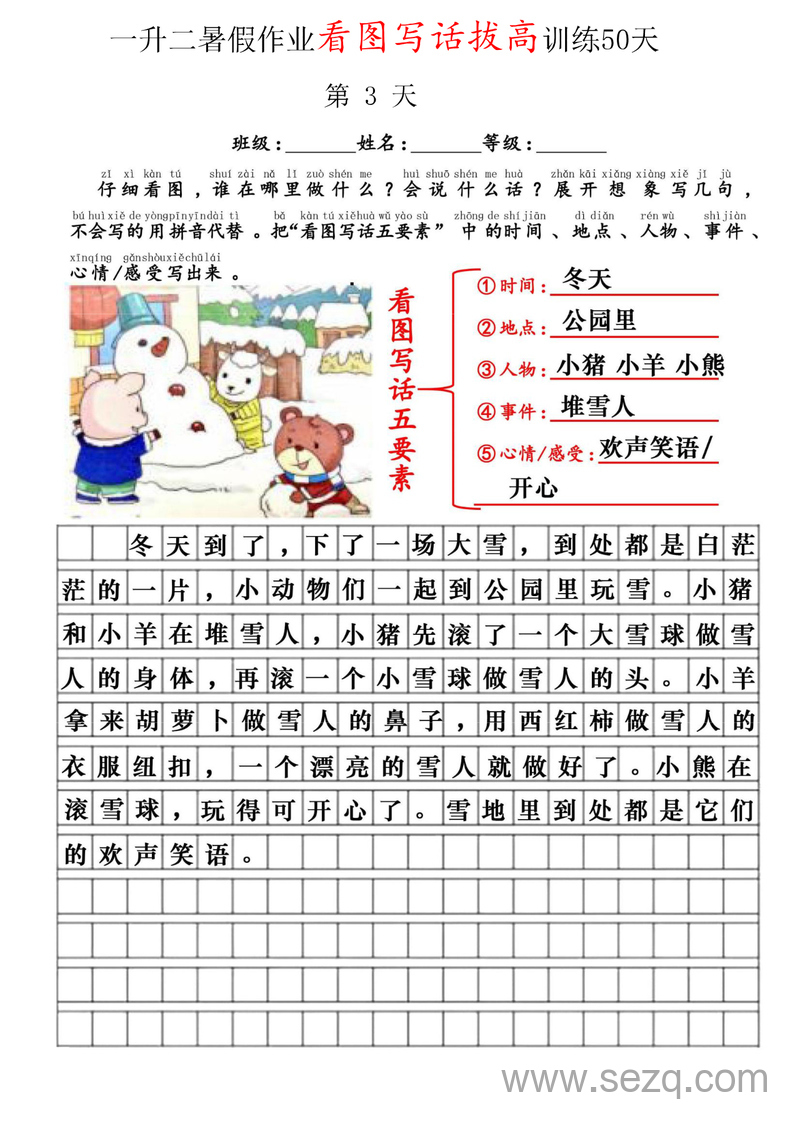 一升二暑假作业看图写话拔高训练50天
第 3 天
班级:______姓名:______等级:______
zǐ xì kàn tú shuí zài nǎ lǐ zuò shén me huì shuō shén me huà zhǎn kāi xiǎng xiàng xiě jǐ jù
仔细看图,谁在哪里做什么?会说什么话?展开想象写几句,
bú huì xiě de yòng pīn yīn dài tì bǎ kàn tú xiě huà wǔ yào sù zhōng de shí jiān dì diǎn rén wù shì jiàn
不会写的用拼音代替。把“看图写话五要素”中的时间、地点、人物、事件、
xīn qíng gǎn shòu xiě chū lái
心情/感受写出来。
看图写话五要素
①时间:冬天
②地点:公园里
③人物:小猪 小羊 小熊
④事件:堆雪人
⑤心情/感受:欢声笑语/
开心
冬天到了,下了一场大雪,到处都是白茫
茫的一片,小动物们一起到公园里玩雪。小猪
和小羊在堆雪人,小猪先滚了一个大雪球做雪
人的身体,再滚一个小雪球做雪人的头。小羊
拿来胡萝卜做雪人的鼻子,用西红柿做雪人的
衣服纽扣,一个漂亮的雪人就做好了。小熊在
滚雪球,玩得可开心了。雪地里到处都是它们
的欢声笑语。
www.sezq.com